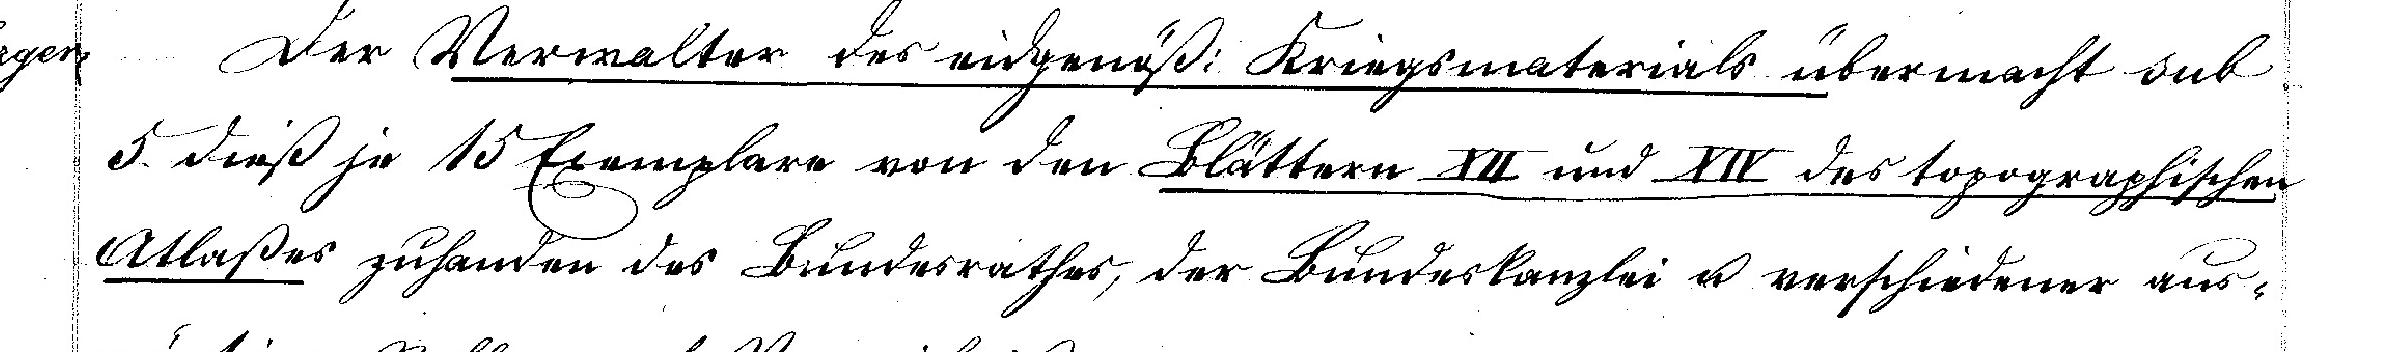 Der Verwalter des eidgenöß: Kriegsmaterials übermacht sub
5. dieß je 15 Exemplare von den Blättern XII und XIV des topographischen
Atlaßes zuhanden des Bundesrathes, der Bundeskanzlei u verschiedener aus-